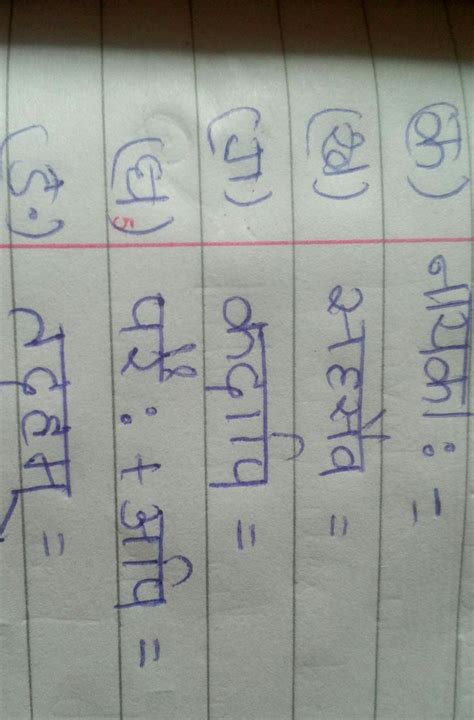 (क) नायकः =
(ख) अहमेव =
(ग) कदापि =
(घ) परैः + अपि =
(ङ) तद्दहम् =
5